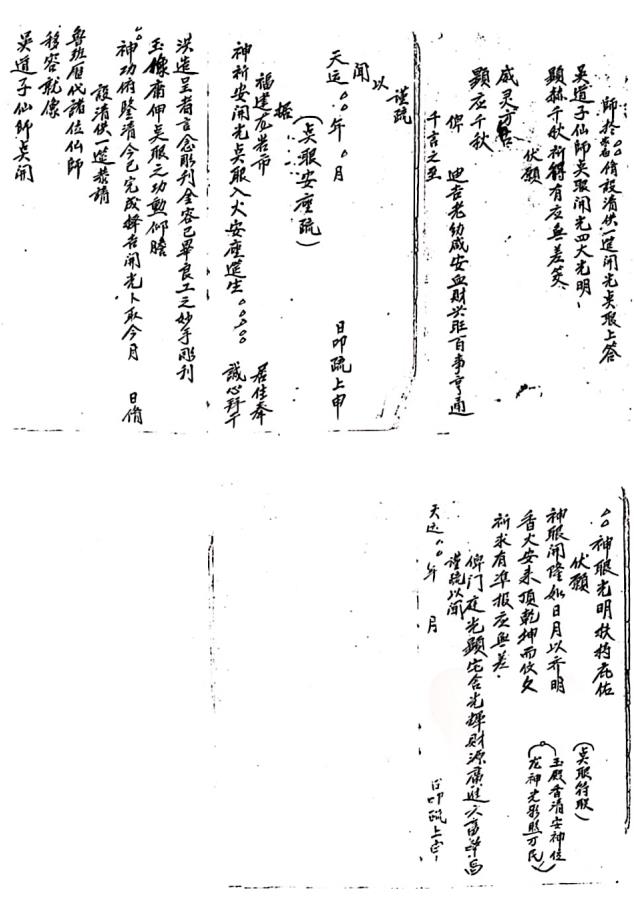 師於宅〇〇脩設清供一筵開光点眼上答
吳道子仙師点眼開光四大光明丶
顯赫千秋祈禱有应無差焂
伏願
威灵万古
顯应千秋
俾 迪吉老幼咸安血財兴旺百事亨通
千言之至
謹疏
以
聞
天运〇〇年〇月 日叩疏上申
(点眼安座疏)
据
福建龙岩市 居住奉
神祈安開光点眼入火安座筵生〇〇〇〇 誠心拜干
洪造呈者言念彫刋金容已畢良工之妙手彫刋
玉像甫伸点眼之功勳仰瞻
〇〇神功俯鉴清今已完成择吉開光卜取今月 日俻
設清供一筵恭請
魯班历代諸位仙師
移容就像
吳道子仙師点開
〇〇神眼光明扶持庇佑
伏願
神眼開隆如日月以齐明
香火安来頂乾坤而攸久
祈求有準报应無差
俾门庭光顯宅舍光輝財源廣进六畜
謹疏以聞
天运〇〇年 月 日叩疏上宣
(点眼符取)
玉殿香清安神位
龙神光彩照万民